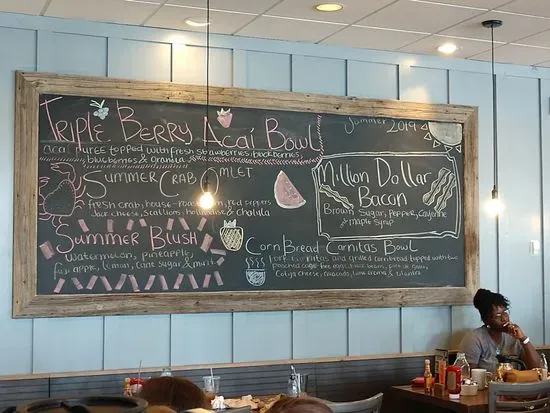 Triple Berry Acaí Bowl
acai puree topped with fresh strawberries, blackberries,
blueberries & Granola
Summer Crab Omlet
fresh crab, house-roasted red peppers
Jack cheese, Scallions, hollandaise & cholula
Summer Blush
Watermelon, pineapple,
fuji apple, lemon, Cane Sugar & mint
Summer 2019
Million Dollar
Bacon
Brown Sugar, Pepper, Cayenne
maple syrup
Corn Bread Carnitas Bowl
Pork Carnitas and grilled cornbread topped with two
poached cage free eggs, black beans, pico de gallo,
Cotija cheese, avocado, lime crema & cilantro